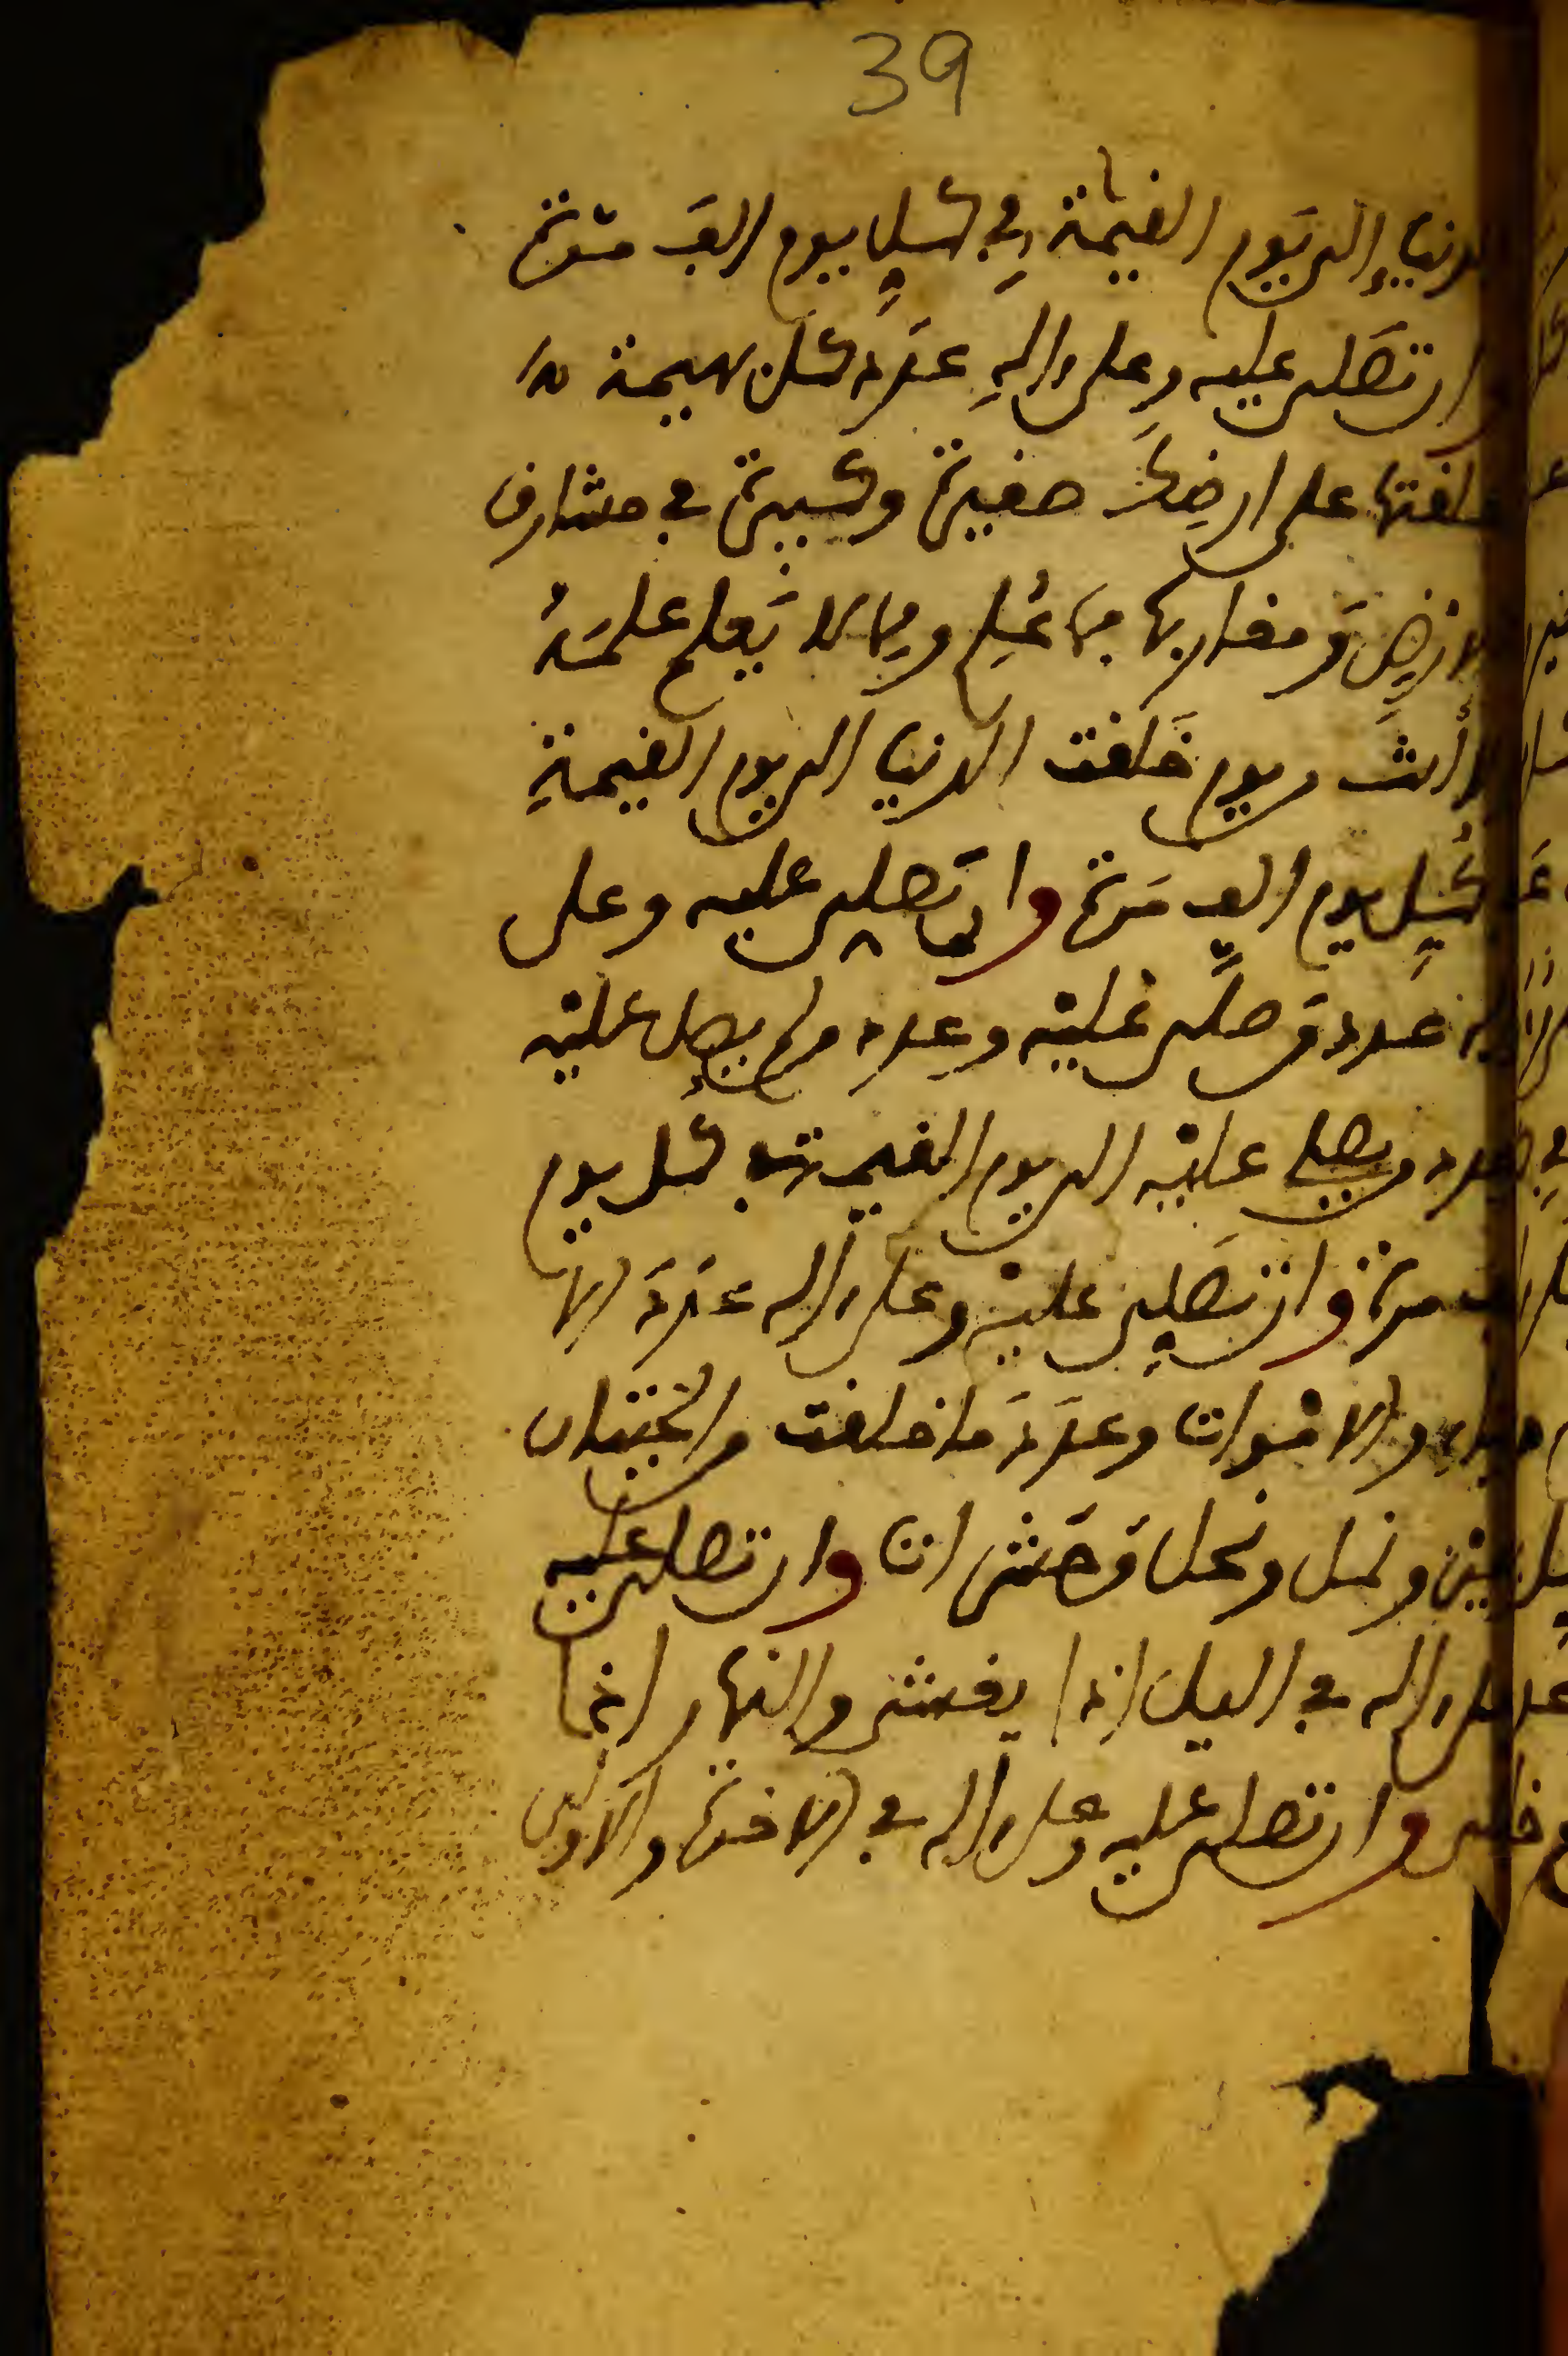 39
لدنيا إلى يوم القيمة في كل يوم الف مرة
ان تصلى عليه وعلى اله عدد كل بهيمة
خلقتها على ارضك صغيرة وكبيرة في مشارق
الارض ومغاربها مما علم ومما لا يعلم علمه
الا انت من يوم خلقت الدنيا الى يوم القيمة
كل يوم الف مرة وان تصلى عليه وعلى
اله عدد من صلى عليه وعدد من لم يصل عليه
وعدد من يصلى عليه الى يوم القيمة في كل يوم
الف مرة وان تصلى عليه وعلى اله عدد الا
حياء والاموات وعدد ما خلقت من حيتان
وطير ونمل ونحل وحشرات وان تصلى عليه
وعلى اله في اليل اذا يغشى والنهار اذا
تجلى وان تصلى عليه وعلى اله في الاخرة والاولى